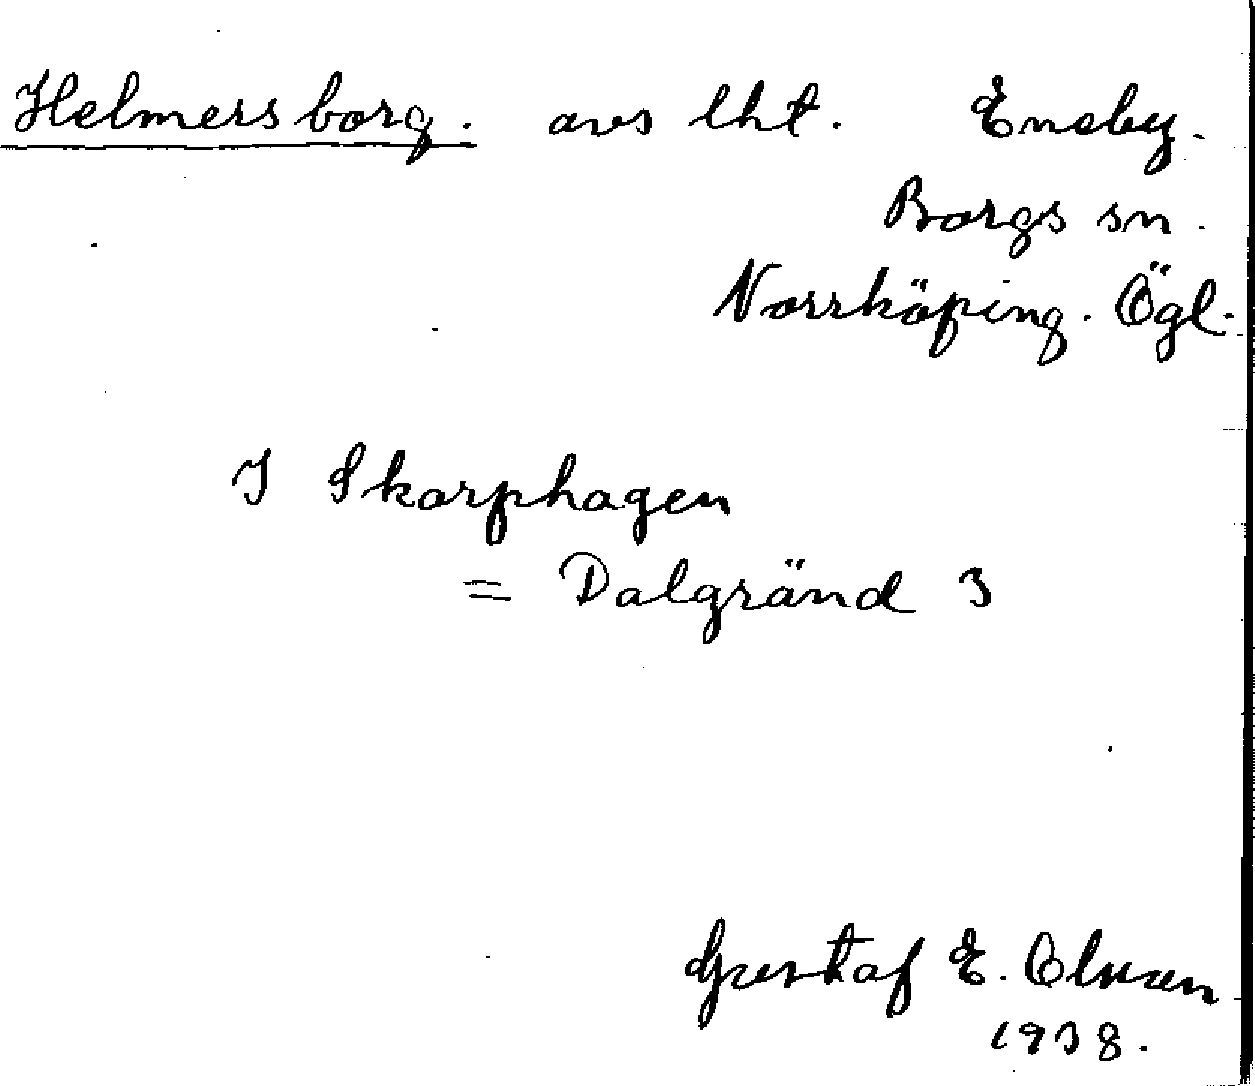 Helmersborg. avs lht. Eneby.
Borgs sn.
Norrköping. Ögl.
I Skarphagen
= Dalgränd 3
Gustaf E. Olsson
1938.